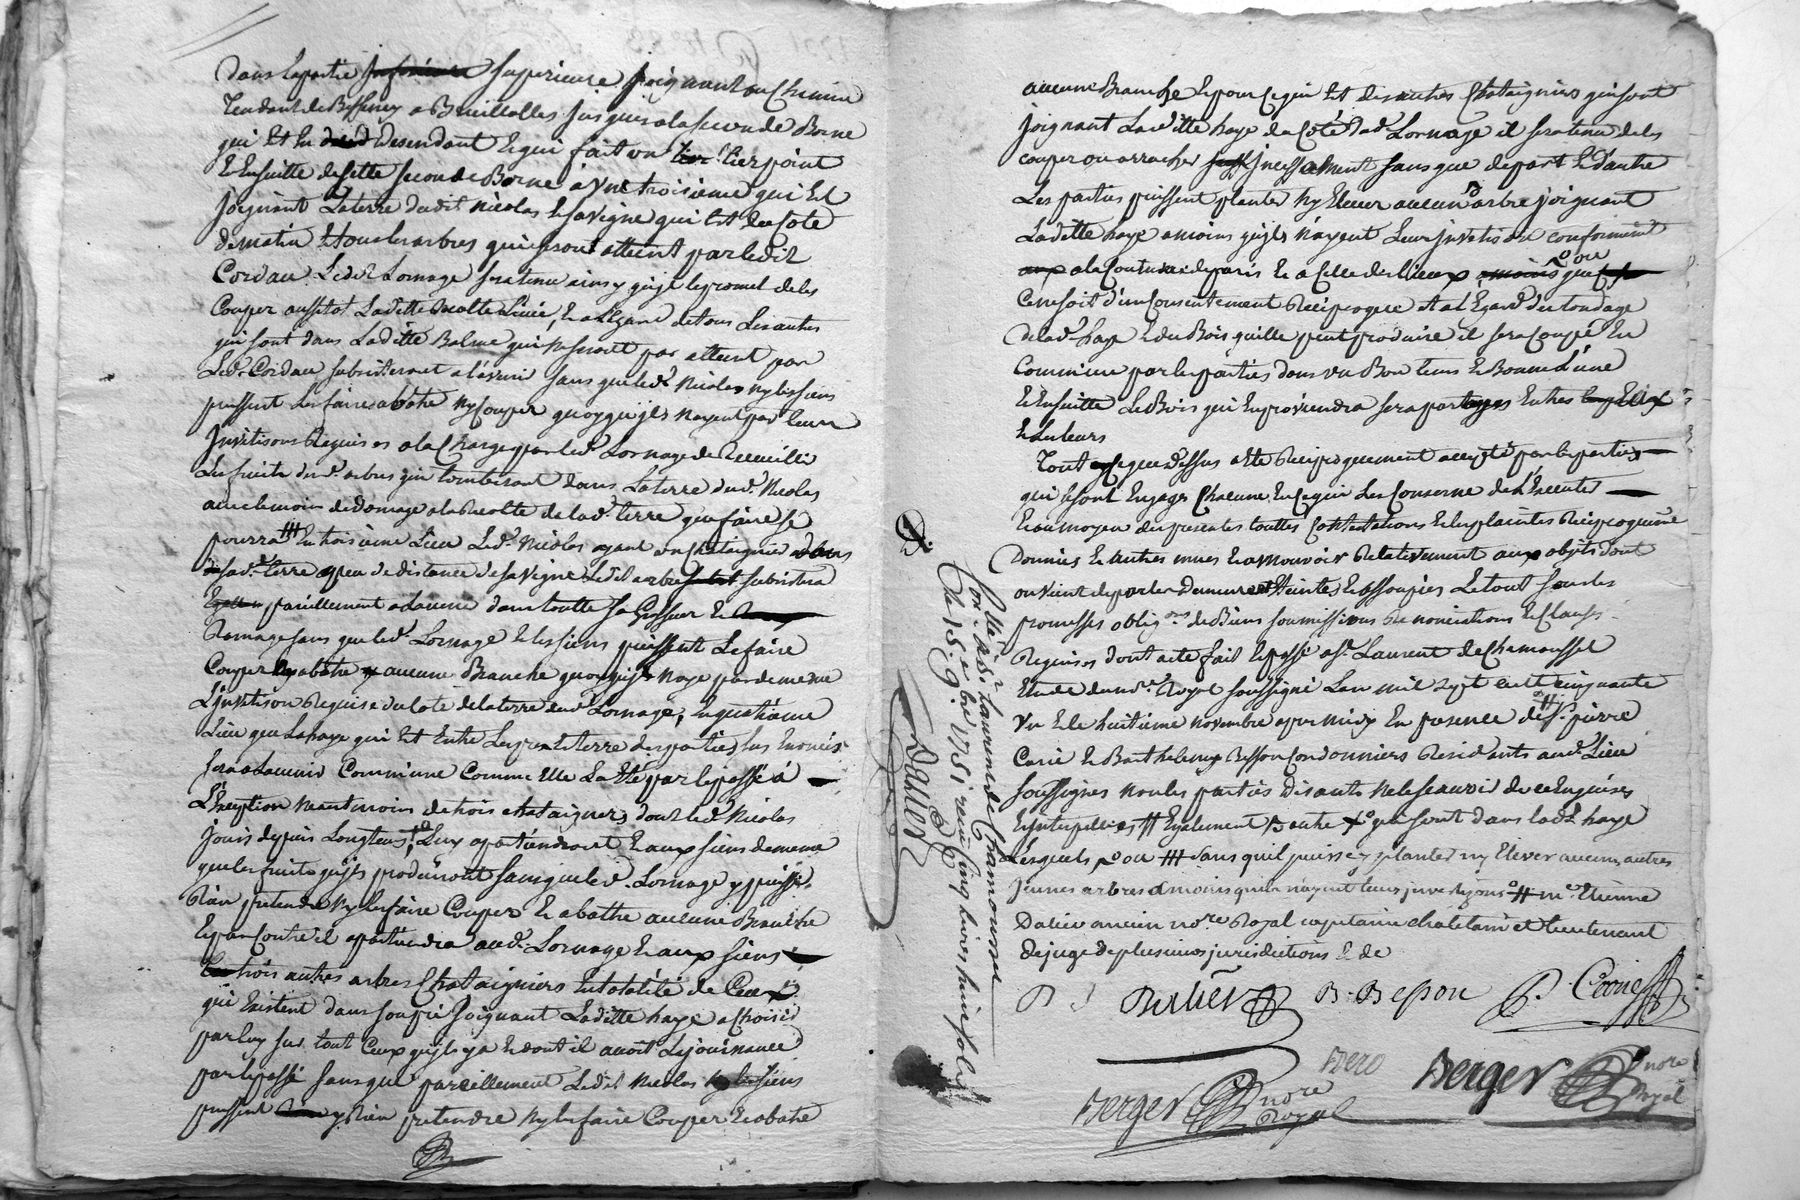 dans la partie superieure joignant au Chemin
Tendant de Bessenay a Bruillolles jusques a la seconde Borne
qui Est En desendant Et qui fait un tier point
Et Ensuitte de sette seconde Borne a Une troisieme qui Est
joignant La terre dudit Nicolas Et sa vigne qui Est du Coté
de matin Et tous les arbres qui seront atteint par ledit
Cordau Ledit Lornage sera tenu ainsy qu'jl le promet de les
Couper aussitot Laditte Recolte Levée, Et a l'Egard de tous Les autres
qui sont dans Laditte Balme qui ne seront pas atteint par
Led. Cordau subsisteront a l'avenir sans que led. Nicolas ny les siens
puissent Les faire abatre ny Couper quoyqu'jls n'ayent pas leur
jnvetison Requises a la Charge par led. Lornage de Recueillir
Les fruits dud. arbres qui tomberont dans La terre dud. Nicolas
avec le moins de domage a la Recolte de lad. terre que faire se
pourra # En troisieme Lieu Led. Nicolas ayant un chataignier dans
sad. terre a peu de distance de sa vigne Ledit arbre subsistera
pareillement a L'avenir dans toutte sa Grosseur Et
Ramage sans que led. Lornage Et les siens puissent Le faire
Couper Ny abatre aucune Branche quoyqu'jl n'aye pas de meme
L'jnvetison Requise du Coté de la terre dud. Lornage, En quatrieme
Lieu que La haye qui Est Entre Les prés Et terre des parties sus Enoncés
sera a L'avenir Commune Comme Elle La Eté par le passé a
L'Exeption neantmoins de trois chataigners dont led. Nicolas
jouis depuis Longtems, Luy apartiendront Et aux siens de meme
que les fruits qu'jls produiront sans que led. Lornage y puisse
Rien pretendre Ny les faire Couper Et abattre aucune Branche
Et par Contre il apartiendra aud. Lornage Et aux siens
trois autres arbres Chataigniers En totalité de Ceux
qui Existent dans son pré joignant Laditte haye a Choisir
par luy sur tout Ceux qu'jl y a Et dont il avoit La jouissance
par le passé sans que pareillement Ledit Nicolas Ny les siens
puissent y Rien pretendre Ny les faire Couper Et abatre
aucune Branche Et pour Ce qui Est des autres Chataigniers qui sont
joignant Laditte haye du Coté dud. Lornage il sera tenu de les
couper ou arracher jncessament sans que de part Et D'autre
Les parties puissent planter Ny Elever aucun arbre joignant
Laditte haye a moins qu'jls N'ayent Leur jnvetison conformement
a la Coutume de paris Et a Celle des Lieux que
Ce ne soit d'un Consentement Reciproque Et a L'Egard du tondage
de lad. haye Et du Bois qu'elle peut produire il sera Coupé En
Commun par les parties dans un Bon tems Et Bonne Lune
Et Ensuitte Le Bois qui En proviendra sera partagé Entre
Et les leurs
Tout Ce que Dessus a Eté Reciproquement accepté par les parties
qui se sont Engagés Chacune En Ce qui Les Conserne de L'Executer
Et au moyen des presentes touttes Contestations Et Complaintes Reciproquement
Données Et autres mues Et a mouvoir Relativement aux objets dont
on vient de parler Demeurent Eteintes Et assoupies Le tout sous les
promesses oblig.ons de Biens soumissions Renonciations Et Clauses
Requises dont acte fait Et passé a St. Laurent de Chamousset
Etude du no.re Royal soussigné L'an mil sept cent cinquante
Un Et le huitieme novembre apres midy En presence de # Sr. pierre
Carié Et Barthelemy Besson Cordonniers Residants aud. Lieu
soussignés Non les parties disants Ne le scavoir de ce Enquises
Et jnterpellées # Egalement autre qui sont dans lad. haye
Lesquels ou # sans quil puisse y planter ny Elever aucuns autres
jeunes arbres a moins quils n'ayent leurs jnvetizons # m.e Etienne
Dalier ancien no.re Royal capitaine chatelain et Lieutenant
de juge de plusieurs jurisdictions
Dalier B. Beson P. Carrié
Berger nore Royal
Berger nore Royal
Con.lle a St Laurent de Chamousset
le 15. 9bre 1751 recu Cinq livres huit sols
Dalier